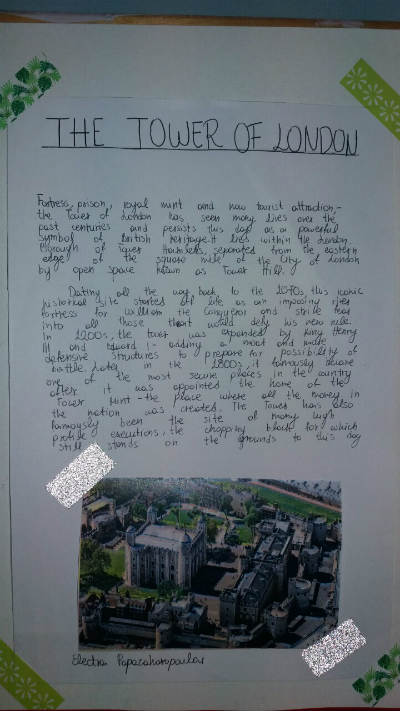 THE TOWER OF LONDON
Fortress, prison, royal mint and now tourist attraction -
the Tower of London has seen many lives over the
past centuries and persists this day as a powerful
symbol of British heritage. It lies within the London
Borough of Tower Hamlets, separated from the eastern
edge of the square mile of the City of London
by open space known as Tower Hill.
Dating all the way back to the 1070s, this iconic
historical site started off life as an imposing
fortress for William the Conqueror and strike fear
into all those that would defy his new rule.
In 1200s, the tower was expanded by King Henry
III and Edward I - adding a moat and more
defensive structures to prepare for possibility of
battle. Later in the 1800s, it famously became
one of the most secure places in the country
after it was appointed the home of the
Tower Mint - the place where all the money in
the nation was created. The Tower has also
famously been the site of many high
profile executions, the chopping block for which
still stands on the grounds to this day
Electra